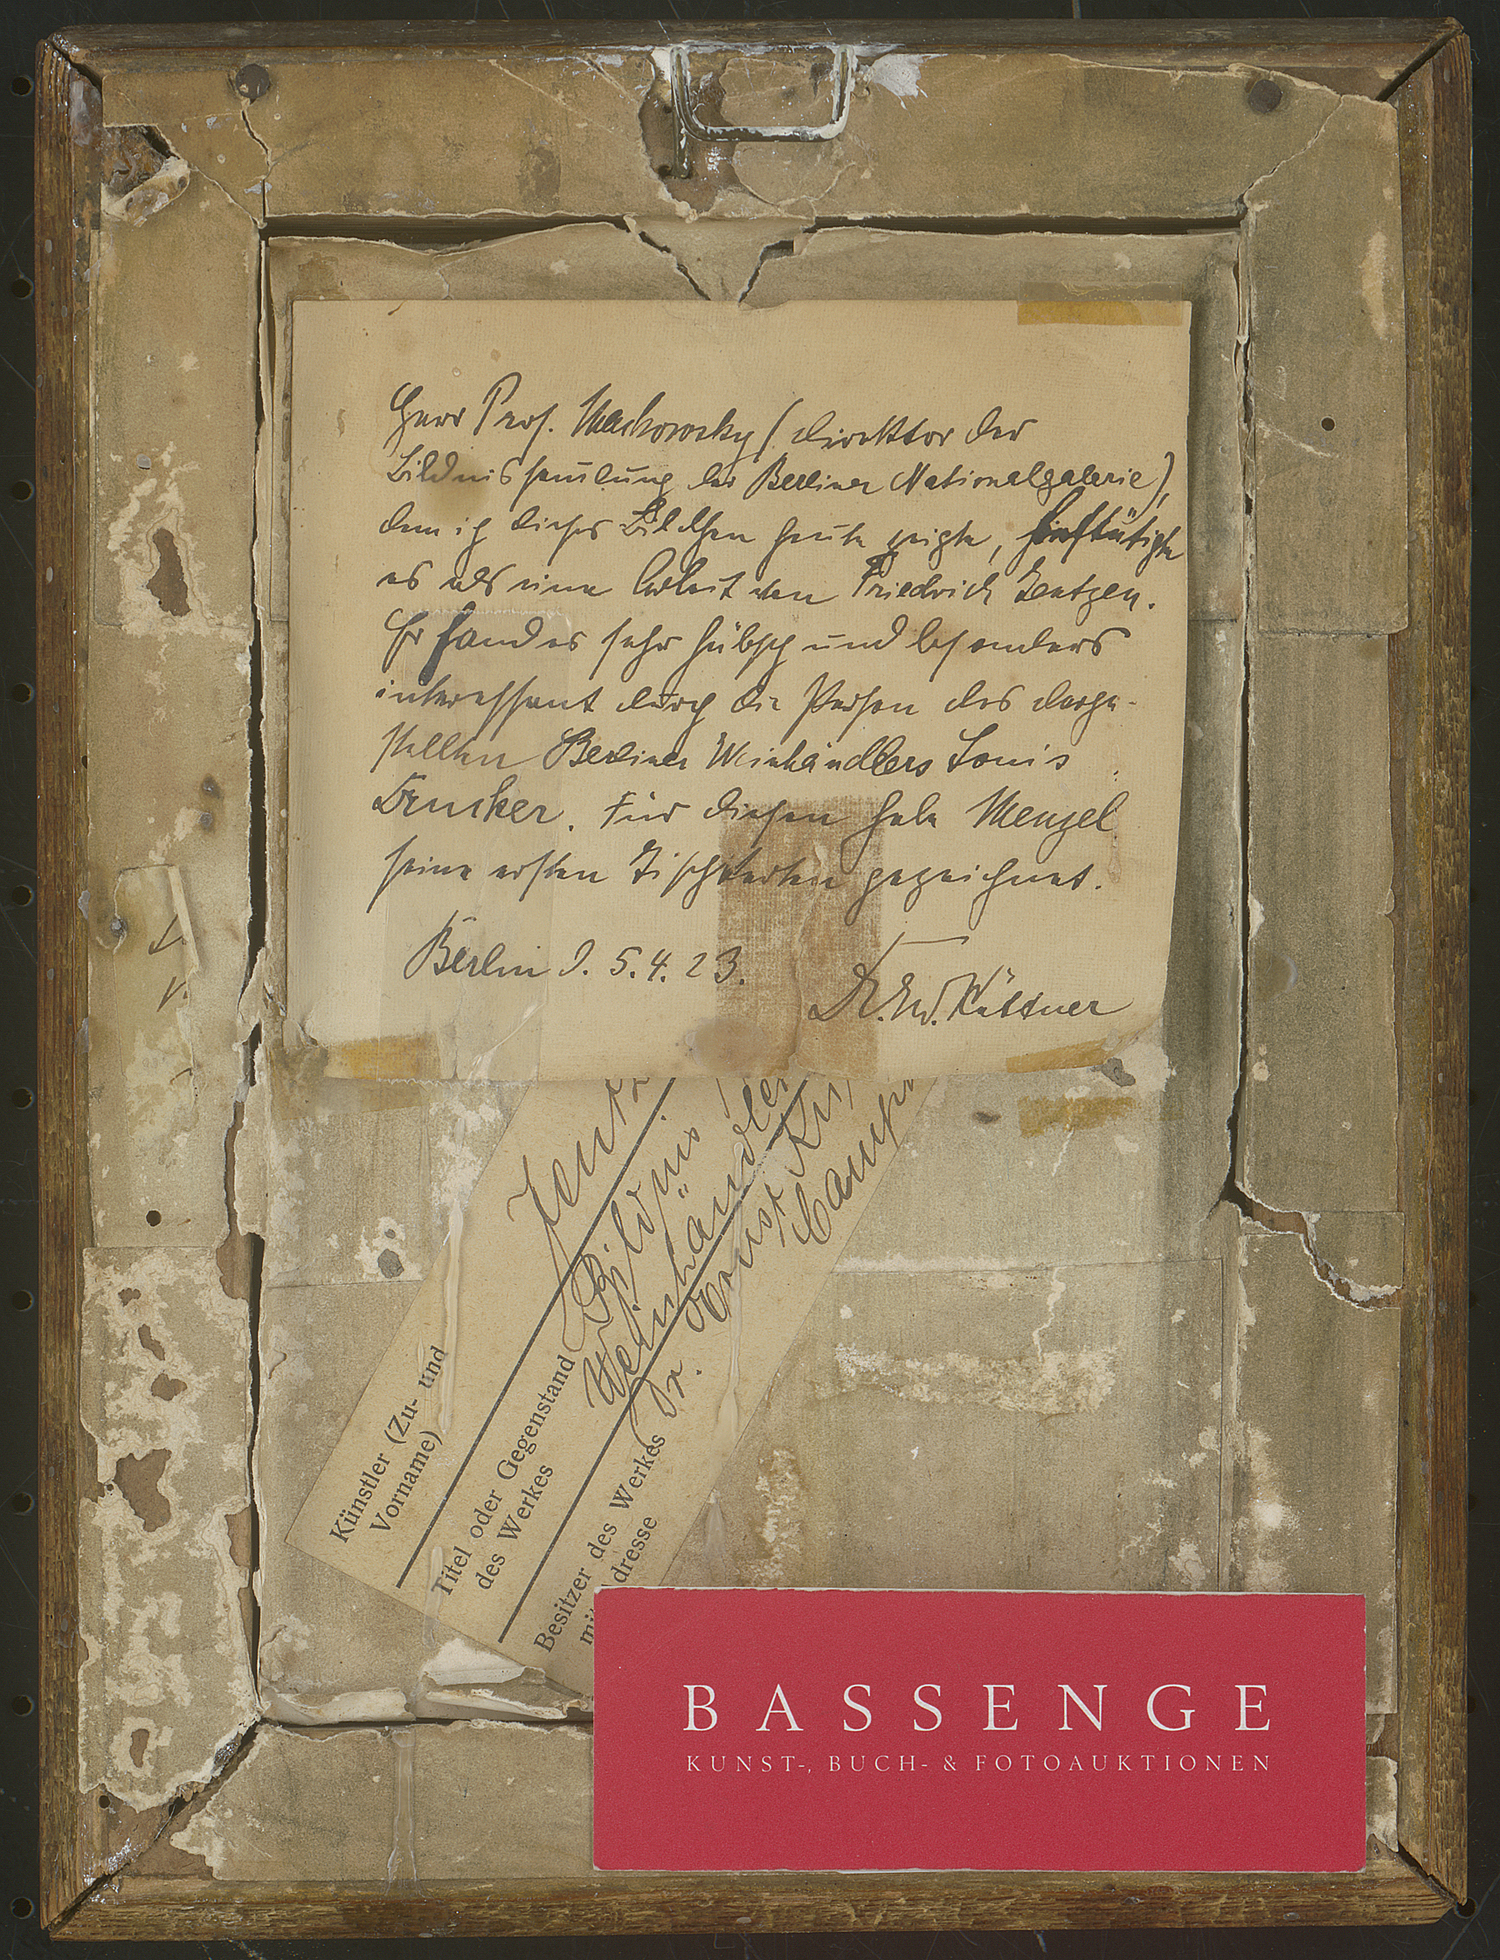 Herr Prof. Mackowsky (Direktor der
Bildnissammlung der Berliner Nationalgalerie),
dem ich dieses Bildchen heute zeigte, bestätigte
es als eine Arbeit von Friedrich Jentzen.
Er fand es sehr hübsch und besonders
interessant durch die Person des darge-
stellten Berliner Weinhändlers Louis
Drucker. Für diesen habe Menzel
seine ersten Tischkarten gezeichnet.
Berlin d. 5.4.23.
Dr. Küttner
Künstler (Zu- und
Vorname)
Titel oder Gegenstand
des Werkes
Bildnis
Weinhändler
Besitzer des Werkes
dresse
Dr. Ernst
BASSENGE
KUNST-, BUCH- & FOTOAUKTIONEN